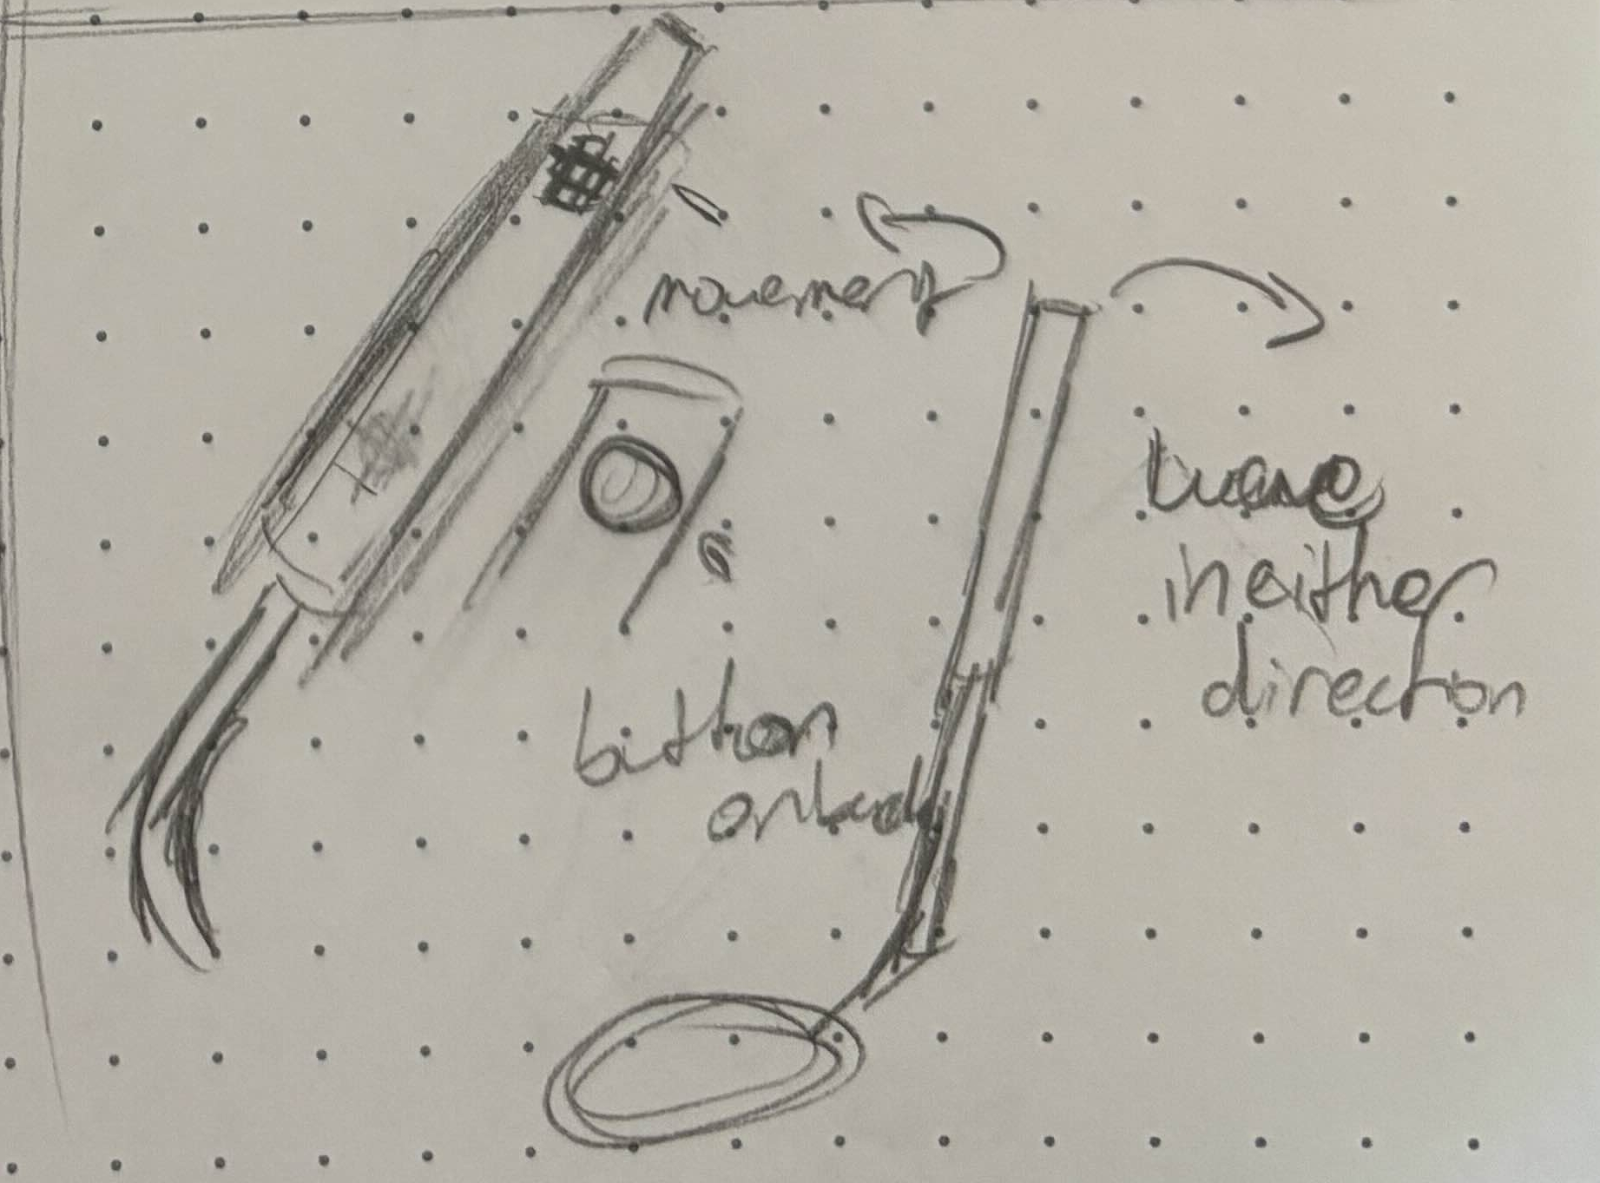 movement
button
on back
in either
direction